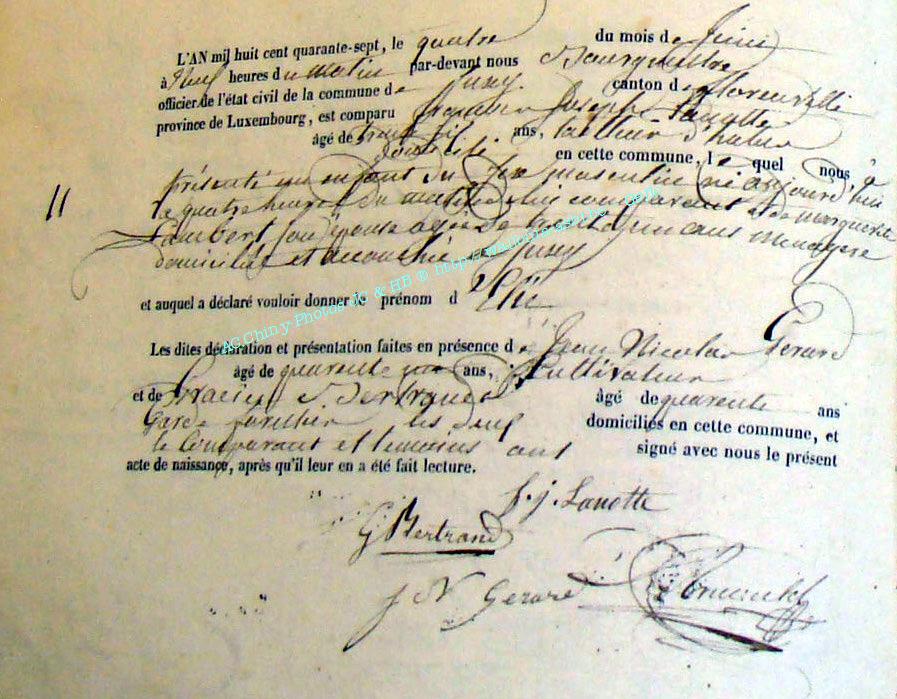 L'AN mil huit cent quarante-sept, le quatre du mois de Juin
à Neuf heures du matin par-devant nous Bourgmestre
officier de l'état civil de la commune de Izel canton de florenville
province de Luxembourg, est comparu françois Joseph Lanotte
âgé de trente six ans, tailleur d'habits
domicilié en cette commune, le quel nous a
11
présenté un enfant du sexe masculin né aujourd'hui
a quatre heures du matin de lui comparant et de marguerite
Lambert son épouse agée de trente un ans menagere
domiciliée et accouchée
et auquel a déclaré vouloir donner le prénom d
Les dites déclaration et présentation faites en présence de Jean Nicolas Gerard
âgé de quarente ans, Cultivateur
et de âgé de quarente ans
Garde forestier les deux domiciliés en cette commune, et
le Comparant et temoins ont signé avec nous le présent
acte de naissance, après qu'il leur en a été fait lecture.
f. j. Lanotte
G Bertrand
J N Gerard
AC Chiny Photos JC & HB ® http://wallonia-genhist